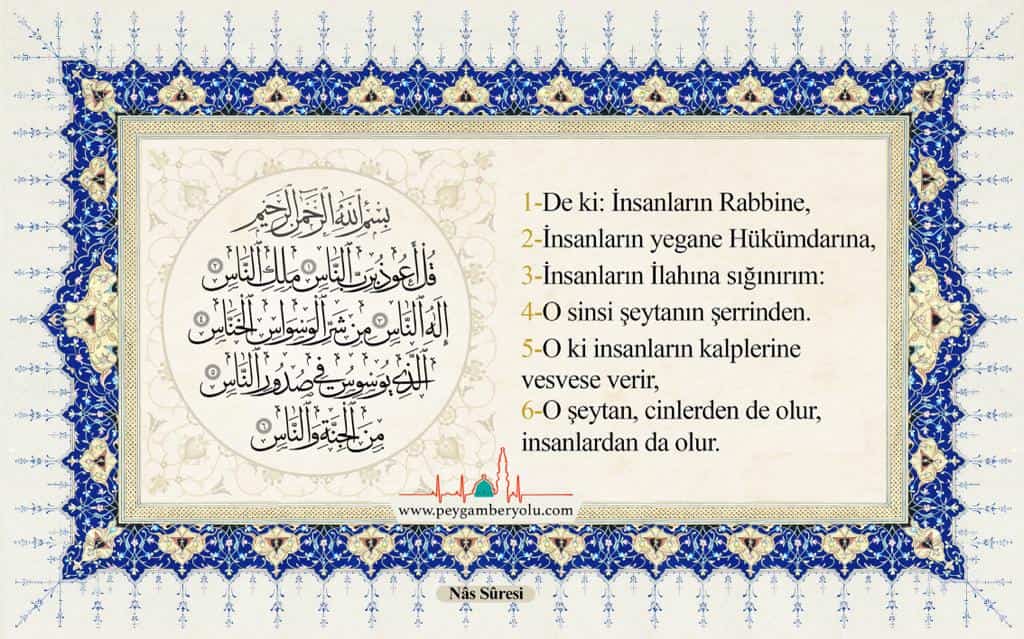 بِسْمِ اللَّهِ الرَّحْمَٰنِ الرَّحِيمِ
قُلْ أَعُوذُ بِرَبِّ النَّاسِ ١ مَلِكِ النَّاسِ ٢
إِلَٰهِ النَّاسِ ٣ مِن شَرِّ الْوَسْوَاسِ الْخَنَّاسِ ٤
الَّذِي يُوَسْوِسُ فِي صُدُورِ النَّاسِ ٥
مِنَ الْجِنَّةِ وَالنَّاسِ ٦
1-De ki: İnsanların Rabbine,
2-İnsanların yegane Hükümdarına,
3-İnsanların İlahına sığınırım:
4-O sinsi şeytanın şerrinden.
5-O ki insanların kalplerine
vesvese verir,
6-O şeytan, cinlerden de olur,
insanlardan da olur.
www.peygamberyolu.com
Nâs Sûresi